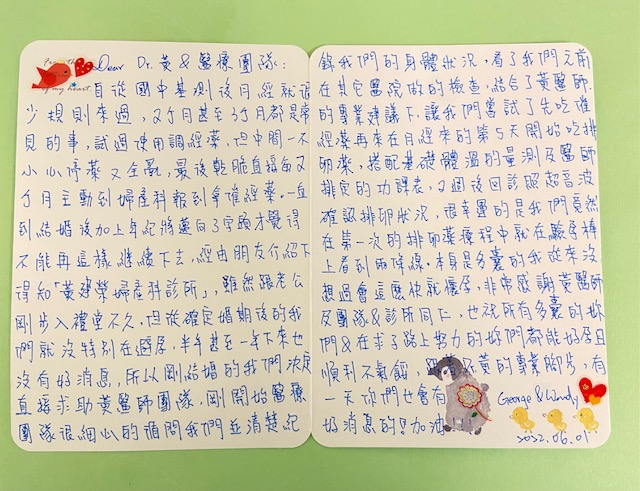 From the
of my heart
Dear Dr. 黃 & 醫療團隊：
自從國中基測後月經就很
少規則來過，2個月甚至3個月都是常
見的事，試過使用調經藥，但中間一不
小心停藥又全亂，最後乾脆直接每2
個月主動到婦產科報到拿催經藥。一直
到結婚後加上年紀將邁向3字頭才覺得
不能再這樣繼續下去，經由朋友介紹下
得知「黃建榮婦產科診所」，雖然跟老公
剛步入禮堂不久，但從確定婚期後的我
們就沒特別在避孕，半年甚至一年下來也
沒有好消息，所以剛結婚的我們決定
直接求助黃醫師團隊。剛開始醫療
團隊很細心的循問我們並清楚紀
錄我們的身體狀況，看了我們之前
在其它醫院做的檢查，結合了黃醫師
的專業建議下，讓我們嘗試了先吃催
經藥再來在月經來的第5天開始吃排
卵藥，搭配基礎體溫的量測及醫師
排定的功課表，2週後回診照超音波
確認排卵狀況，很幸運的是我們竟然
在第一次的排卵藥療程中就在驗孕棒
上看到兩條線。本身是多囊的我從來沒
想過會這麼快就懷孕，非常感謝黃醫師
及團隊&診所同仁，也祝所有多囊的妳
們&在求子路上努力的妳們都能好孕且
順利不氣餒，黃的專業腳步，有
一天你們也會有
好消息的！加油
George & Wendy
2022.06.01